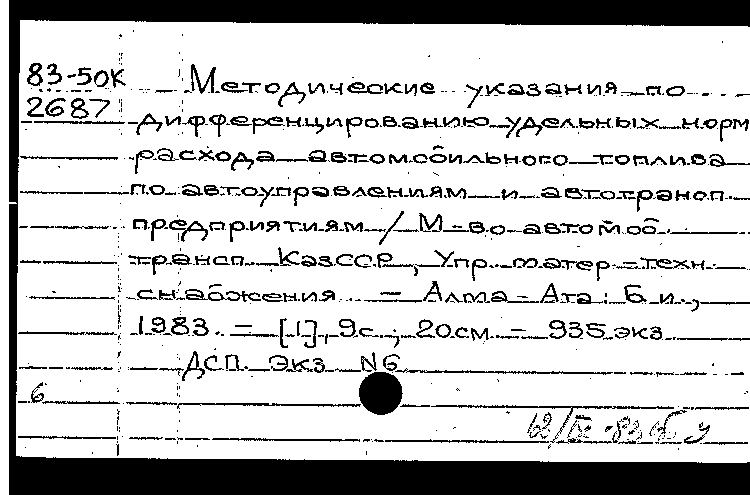 83-50К Методические указания по
2687 дифференцированию удельных норм
расхода автомобильного топлива
по автоуправлениям и автотрансп.
предприятиям / М-во автомоб.
трансп. КазССР, Упр. матер-техн.
снабжения. - Алма-Ата: Б.и.,
1983. - [1], 9с.; 20см - 935 экз.
ДСП. Экз. N6
6